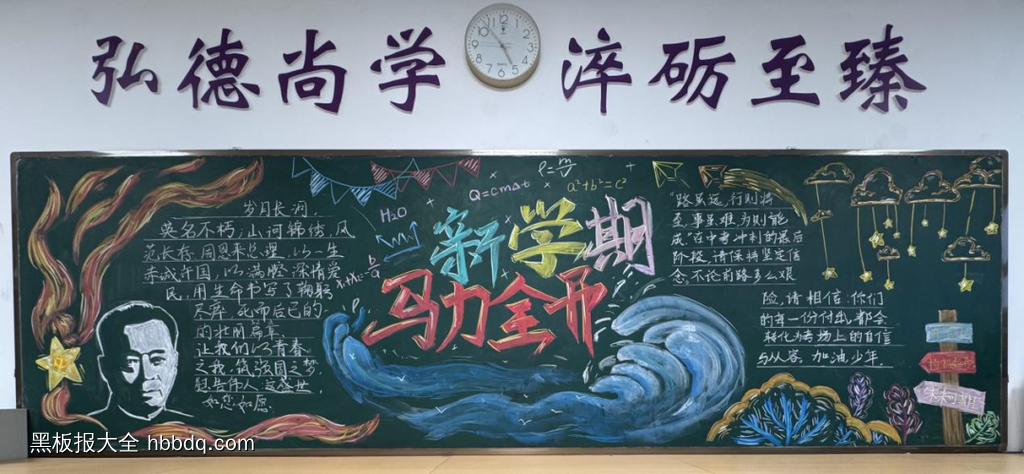 弘德尚学 淬砺至臻
岁月长河,
英名不朽;山河锦绣,风
范长存。周恩来总理,以一生
赤诚许国,以满腔深情爱
民,用生命书写了鞠躬
尽瘁,死而后已的
壮丽篇章。
让我们以青春
之我,筑强国之梦,
慰告伟人,这盛世,
如您如愿。
H₂O
Q=cmΔt
ρ=m/V
a²+b²=c²
新学期
马力全开
路虽远,行则将
至,事虽难,为则能
成。在中考冲刺的最后
阶段,请保持坚定信
念,不论前路多么艰
险,请相信:你们
的每一份付出,都会
转化为考场上的自信
与从容。加油少年。
未来可期
黑板报大全 hbbdq.com